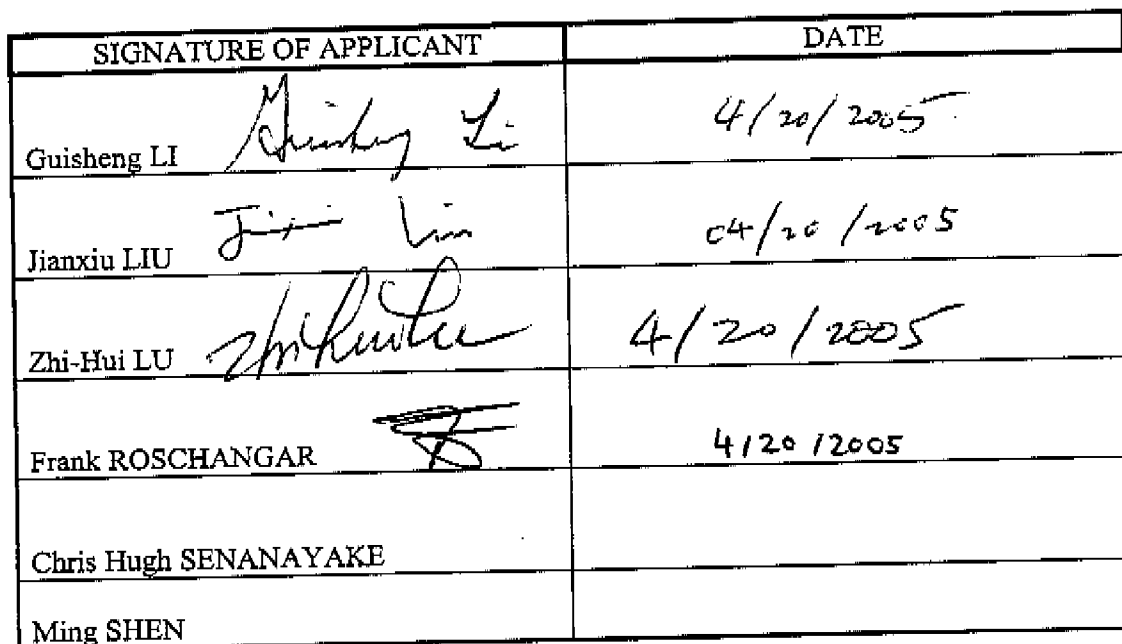 SIGNATURE OF APPLICANT DATE
Guisheng LI Guisheng Li 4/20/2005
Jianxiu LIU 04/20/2005
Zhi-Hui LU 4/20/2005
Frank ROSCHANGAR 4/20/2005
Chris Hugh SENANAYAKE
Ming SHEN